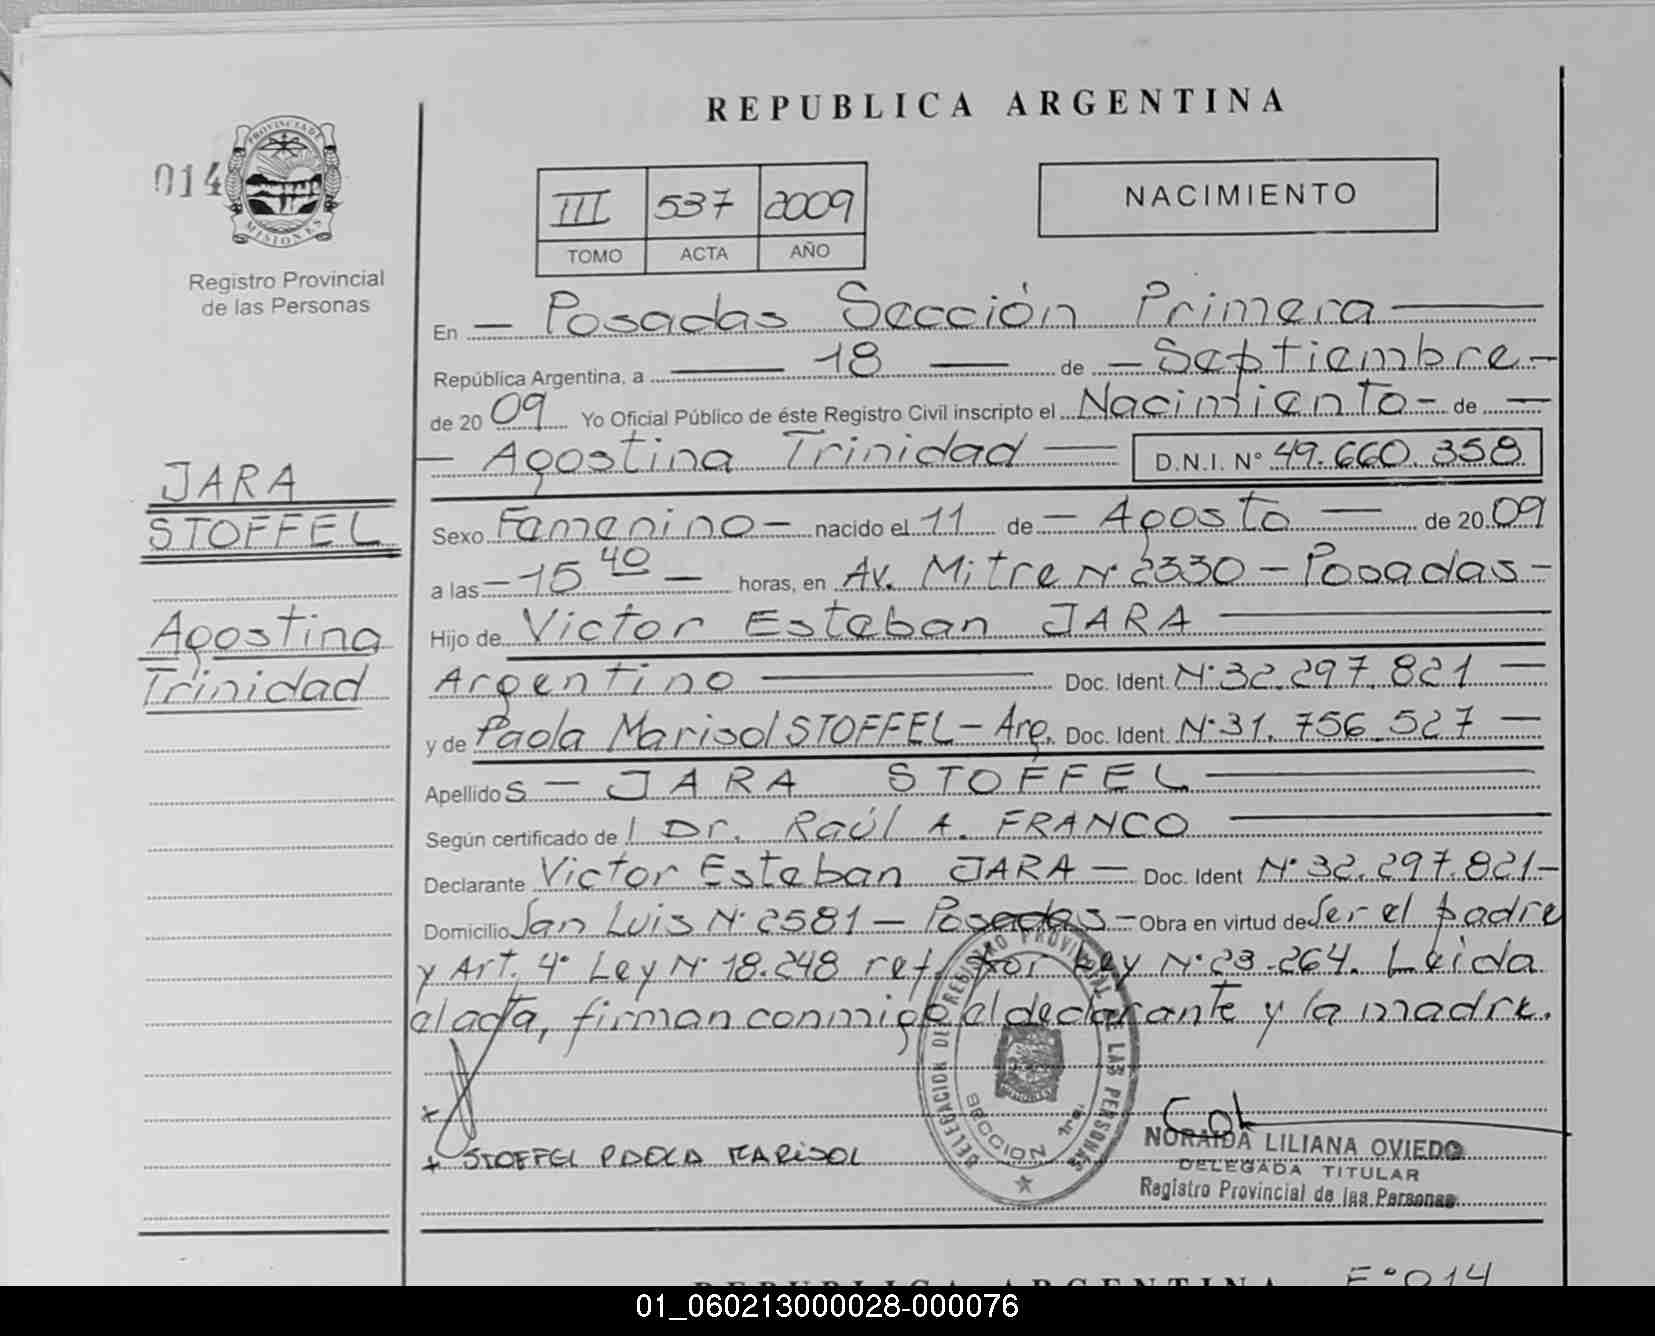 REPUBLICA ARGENTINA
014
PROVINCIA DE
MISIONES
Registro Provincial
de las Personas
III 537 2009
TOMO ACTA AÑO
NACIMIENTO
En — Posadas Sección Primera —
República Argentina, a — 18 — de — Septiembre —
de 2009 Yo Oficial Público de éste Registro Civil inscripto el Nacimiento - de —
— Agostina Trinidad — D.N.I. N° 49.660.358
JARA
STOFFEL
Agostina
Trinidad
Sexo Femenino — nacido el 11 de — Agosto — de 2009
a las — 15 40 — horas, en Av. Mitre N° 2330 — Posadas —
Hijo de Victor Esteban JARA —
Argentino — Doc. Ident. N° 32.297.821 —
y de Paola Marisol STOFFEL — Arg. Doc. Ident. N° 31.756.527 —
Apellidos — JARA STOFFEL —
Según certificado del Dr. Raúl A. FRANCO —
Declarante Victor Esteban JARA — Doc. Ident N° 32.297.821 —
Domicilio San Luis N° 2581 — Posadas — Obra en virtud de Ser el padre
y Art. 4° Ley N° 18.248 ref. por Ley N° 23.264. Leida
el acta, firman conmigo el declarante y la madre.
+
+ STOFFEL PAOLA MARISOL
DELEGACION DEL REGISTRO PROVINCIAL DE LAS PERSONAS
SECCION 1ra.
NORAIDA LILIANA OVIEDO
DELEGADA TITULAR
Registro Provincial de las Personas
REPUBLICA ARGENTINA F°014
01_060213000028-000076